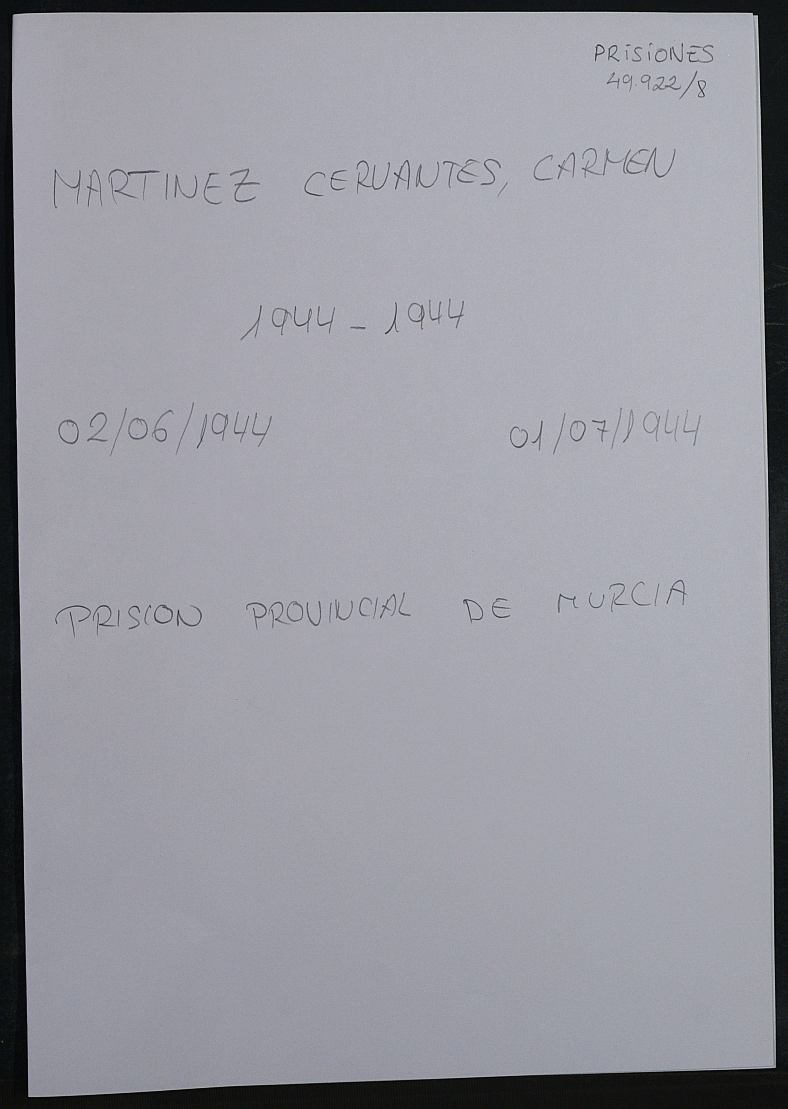 PRISIONES
49.922/8
MARTINEZ CERVANTES, CARMEN
1944 - 1944
02/06/1944 01/07/1944
PRISION PROVINCIAL DE MURCIA